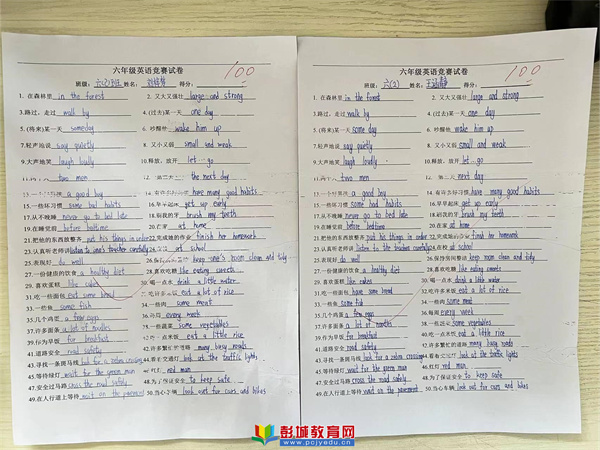 六年级英语竞赛试卷
100
班级: 六(2)班 姓名: 得分:
1. 在森林里 in the forest 2. 又大又强壮 large and strong
3.路过,走过 walk by 4.(过去)某一天 one day
5.(将来)某一天 someday 6.吵醒他 wake him up
7.轻声地说 say quietly 8.又小又弱 small and weak
9.大声地笑 laugh loudly 10.释放,放开 let…go
two men the next day
a good boy have many good habits
15.一些坏习惯 some bad habits 16.早早起床 get up early
17.从不晚睡 never go to bed late 18.刷我的牙 brush my teeth
19.在睡觉前 before bedtime 20.在家 at home
21.把他的东西放整齐 put his things in order 22.完成她的作业 finish her homework
23.认真听老师讲 listen to one's teacher carefully 24.在学校 at school
25.表现好 do well keep one's room clean and tidy
27.一份健康的饮食 a healthy diet 28.喜欢吃糖 like eating sweets
29.喜欢蛋糕 like cakes 30.喝一点水 drink a little water
31.吃一些面包 eat some bread eat a lot of rice
some fish 34.一些肉 some meat
35.几个鸡蛋 a few eggs 36.每周 every week
37.许多面条 a lot of noodles some vegetables
39.作为早餐 for breakfast eat a little rice
41.道路安全 road safety many busy roads
43.寻找一条斑马线 look for a zebra crossing look at the traffic lights
45.等待绿灯 wait for the green man 46.红灯 red man
47.安全过马路 cross the road safely 48.为了保证安全 to keep safe
49.在人行道上等待 wait on the pavement 50.当心车辆 look out for cars and bikes
六年级英语竞赛试卷
100
班级: 六(2) 姓名: 得分:
1.在森林里 in the forest 2. 又大又强壮 large and strong
3.路过,走过 walk by 4.(过去)某一天 one day
5.(将来)某一天 some day 6.吵醒他 wake him up
7.轻声地说 say quietly 8.又小又弱 small and weak
9.大声地笑 laugh loudly 10.释放,放开 let…go
two men next day
a good boy have many good habits
15.一些坏习惯 some bad habits 16.早早起床 get up early
17.从不晚睡 never go to bed late 18.刷我的牙 brush my teeth
19.在睡觉前 before bedtime 20.在家 at home
21.把他的东西放整齐 put his things in order 22.完成她的作业 finish her homework
23.认真听老师讲 listen to the teacher carefully 24.在学校 at school
25.表现好 do well 26.保持房间整洁 keep room clean and tidy
27.一份健康的饮食 a healthy diet 28.喜欢吃糖 like eating sweets
29.喜欢蛋糕 like cakes 30.喝一点水 drink a little water
31.吃一些面包 have some bread eat a lot of rice
33.一些鱼 some fish 34.一些肉 some meat
35.几个鸡蛋 a few eggs 36.每周 every week
37.许多面条 a lot of noodles some vegetables
39.作为早餐 for breakfast eat a little rice
41.道路安全 road safety many busy roads
43.寻找一条斑马线 look for a zebra crossing look at the traffic lights
45.等待绿灯 wait for the green man 46.红灯 red man
47.安全过马路 cross the road safely 48.为了保证安全 to keep safe
49.在人行道上等待 wait on the pavement 50.当心车辆 look out for cars and bikes
彭城教育网
www.pcjyedu.cn